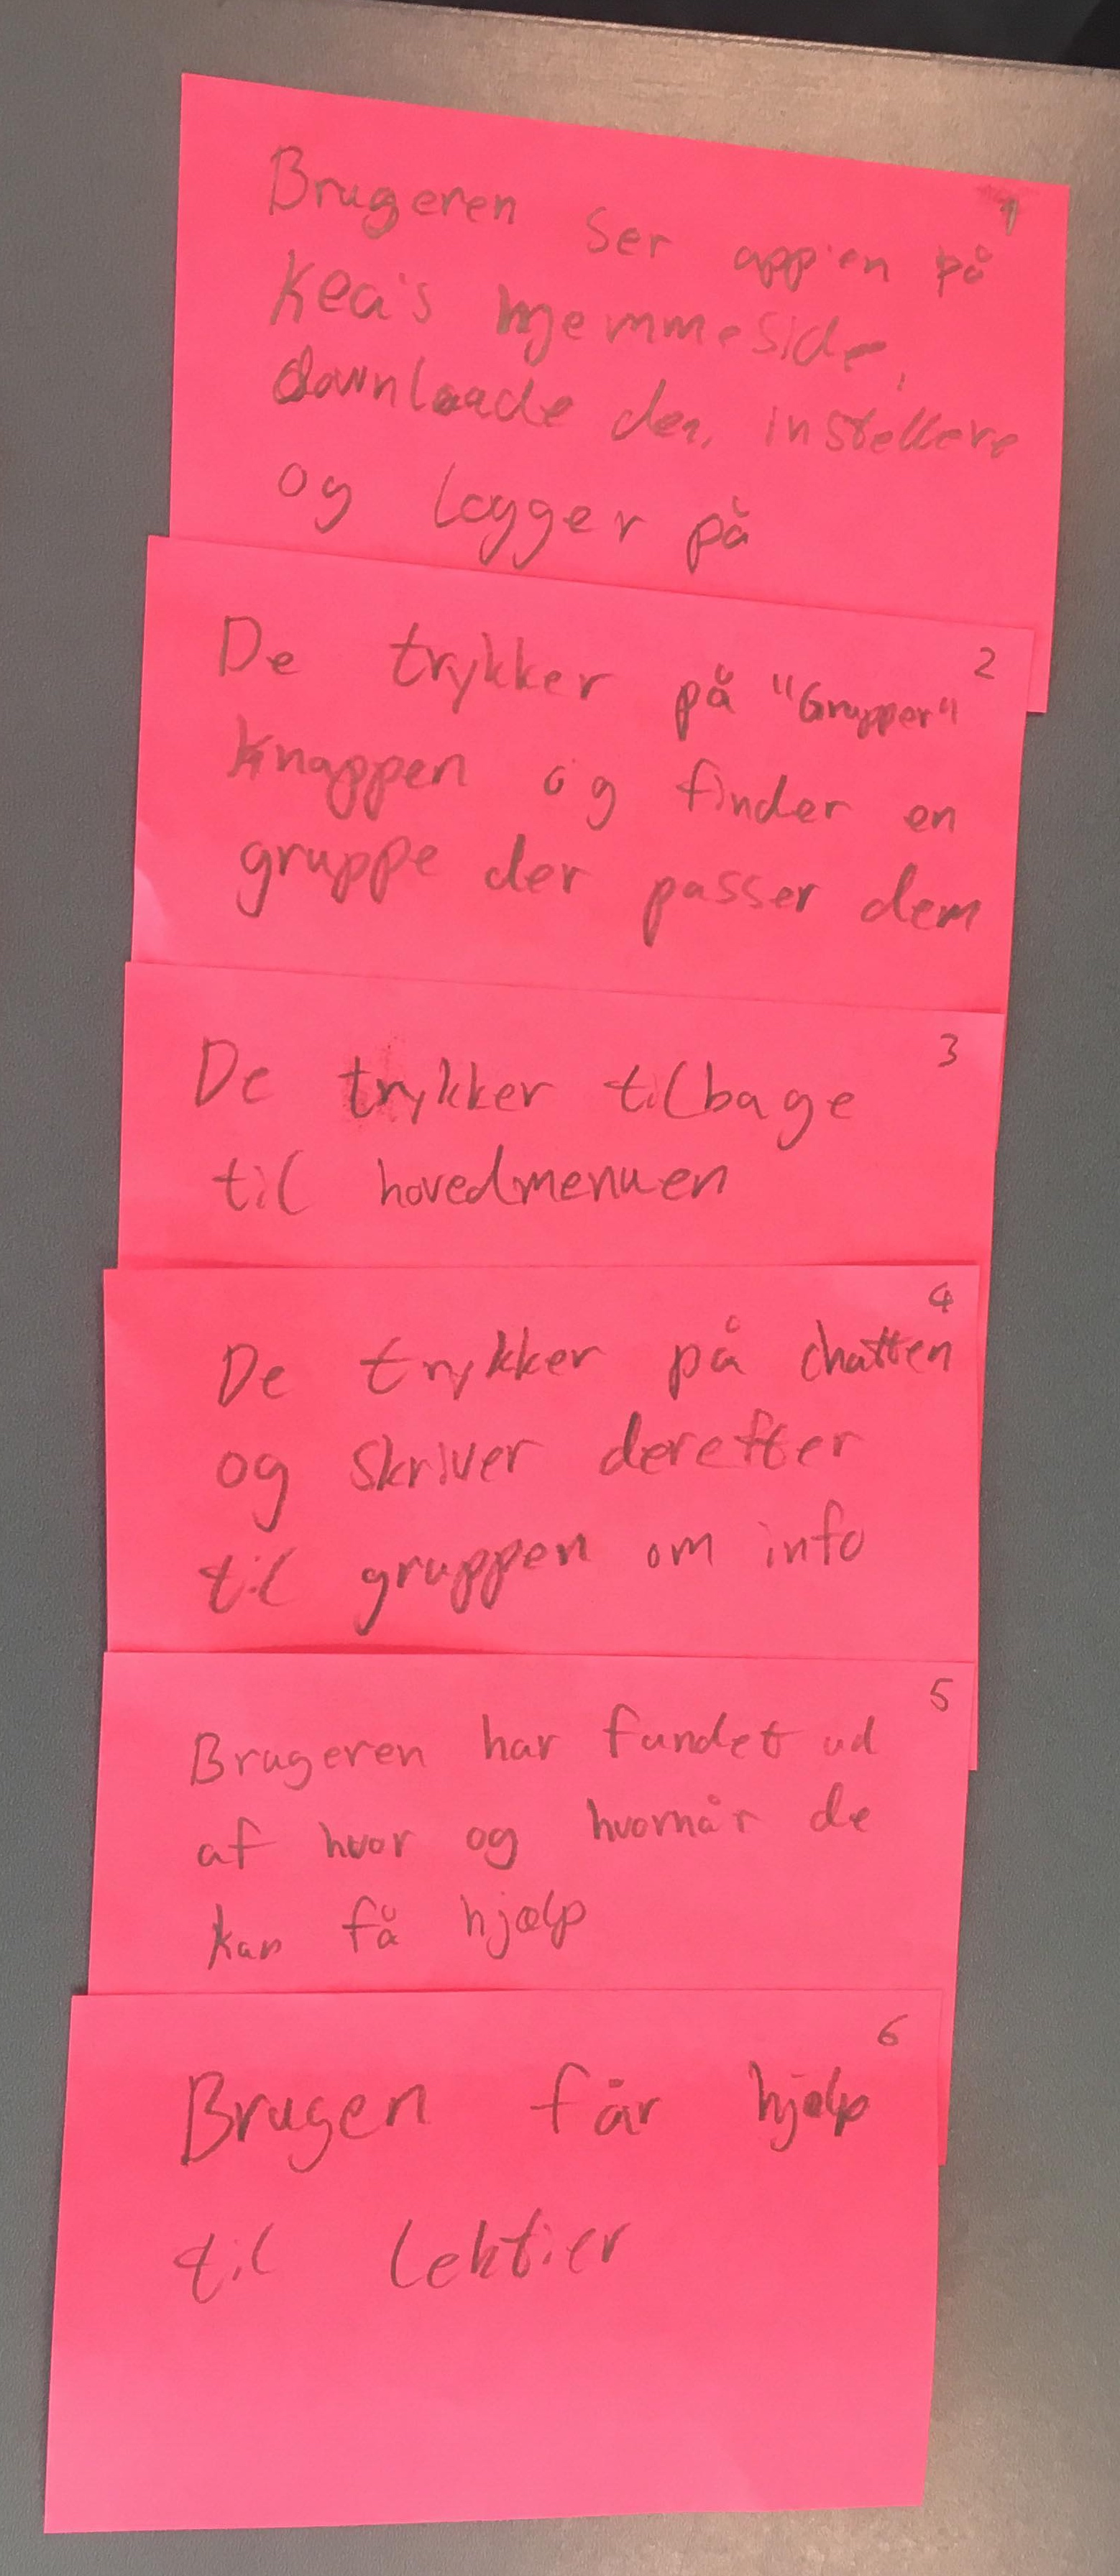 1
Brugeren ser app'en på
Kea's hjemmeside,
downloade den, instellere
og logger på
2
De trykker på "Grupper"
knappen og finder en
gruppe der passer dem
3
De trykker tilbage
til hovedmenuen
4
De trykker på chatten
og skriver derefter
til gruppen om info
5
Brugeren har fundet ud
af hvor og hvornår de
kan få hjælp
6
Brugen får hjælp
til lektier